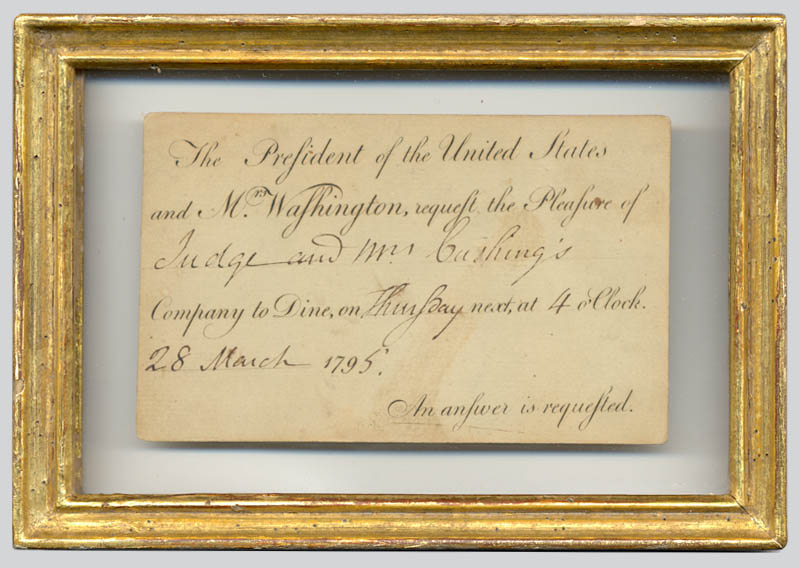 The Preſident of the United States
and Mrs. Waſhington, requeſt the Pleaſure of
Judge and Mrs Cushing's
Company to Dine, on Thursday next, at 4 o'Clock.
28 March 1795.
An anſwer is requeſted.